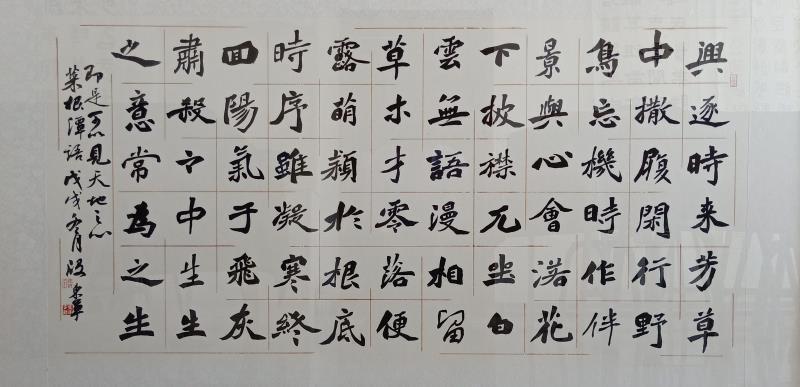 興逐時来芳草
中撒履閑行野
鳥忘機時作伴
景與心會落花
下披襟兀坐白
雲無語漫相留
草木才零落便
露萌穎於根底
時序雖凝寒終
回陽氣于飛灰
肅殺之中生生
之意常為之生
即是可以見天地之心
菜根潭語戊戌冬月